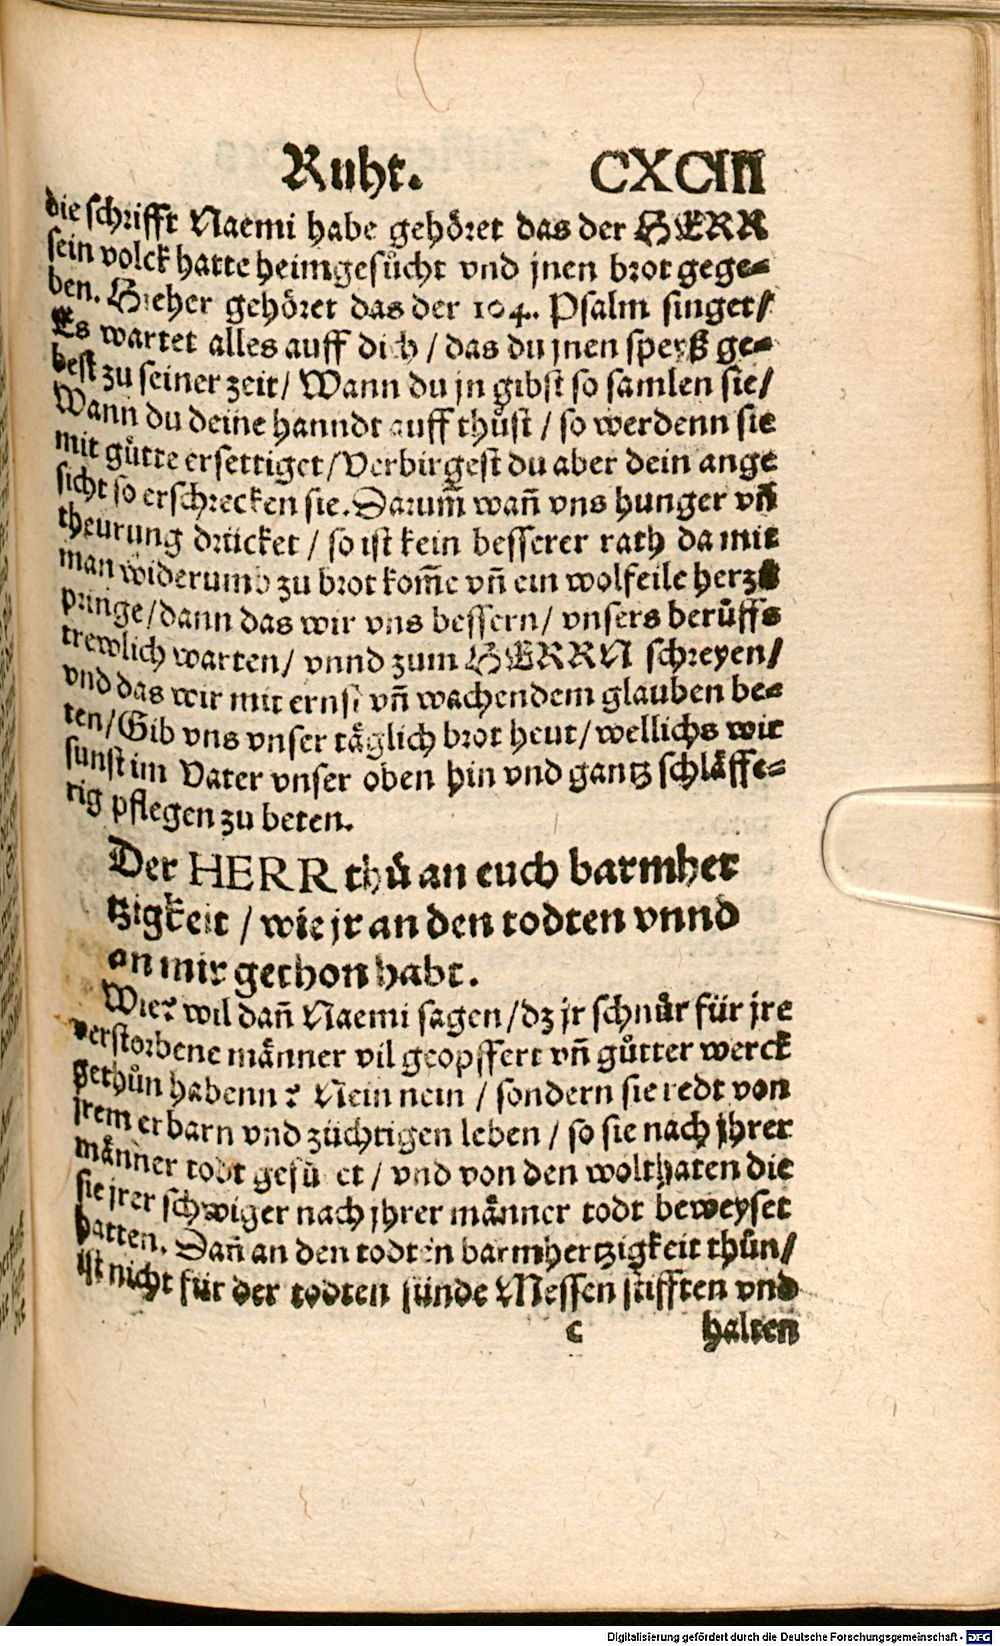 Ruht. CXCIII
die schrifft Naemi habe gehöret das der HERR
sein volck hatte heimgesůcht vnd jnen brot gege=
ben. Hieher gehöret das der 104. Psalm singet/
Es wartet alles auff dich / das du jnen speyß ge=
best zu seiner zeit/ Wann du jn gibst so samlen sie/
Wann du deine hanndt auff thůst / so werdenn sie
mit gůtte ersettiget/Verbirgest du aber dein ange
sicht so erschrecken sie. Darum̃ wañ vns hunger vñ
theurung drücket / so ist kein besserer rath da mit
man widerumb zu brot kom̃e vñ ein wolfeile herzů
pringe/dann das wir vns bessern/ vnsers berůffs
trewlich warten/ vnnd zum HERRN schreyen/
vnd das wir mit ernst vñ wachendem glauben be=
ten/Gib vns vnser täglich brot heut/wellichs wir
sunst im Vater vnser oben hin vnd gantz schläffe=
rig pflegen zu beten.
Der HERR thů an euch barmher
tzigkeit / wie jr an den todten vnnd
an mir gethon habt.
Wie? wil dañ Naemi sagen/dz jr schnůr für jre
verstorbene männer vil geopffert vñ gůtter werck
gethůn habenn? Nein nein / sondern sie redt von
jrem erbarn vnd züchtigen leben / so sie nach jhrer
männer todt gefüret / vnd von den wolthaten die
sie jrer schwiger nach jhrer männer todt beweyset
hatten. Dañ an den todten barmhertzigkeit thůn/
ist nicht für der todten sünde Messen stifften vnd
c halten
Digitalisierung gefördert durch die Deutsche Forschungsgemeinschaft - DFG